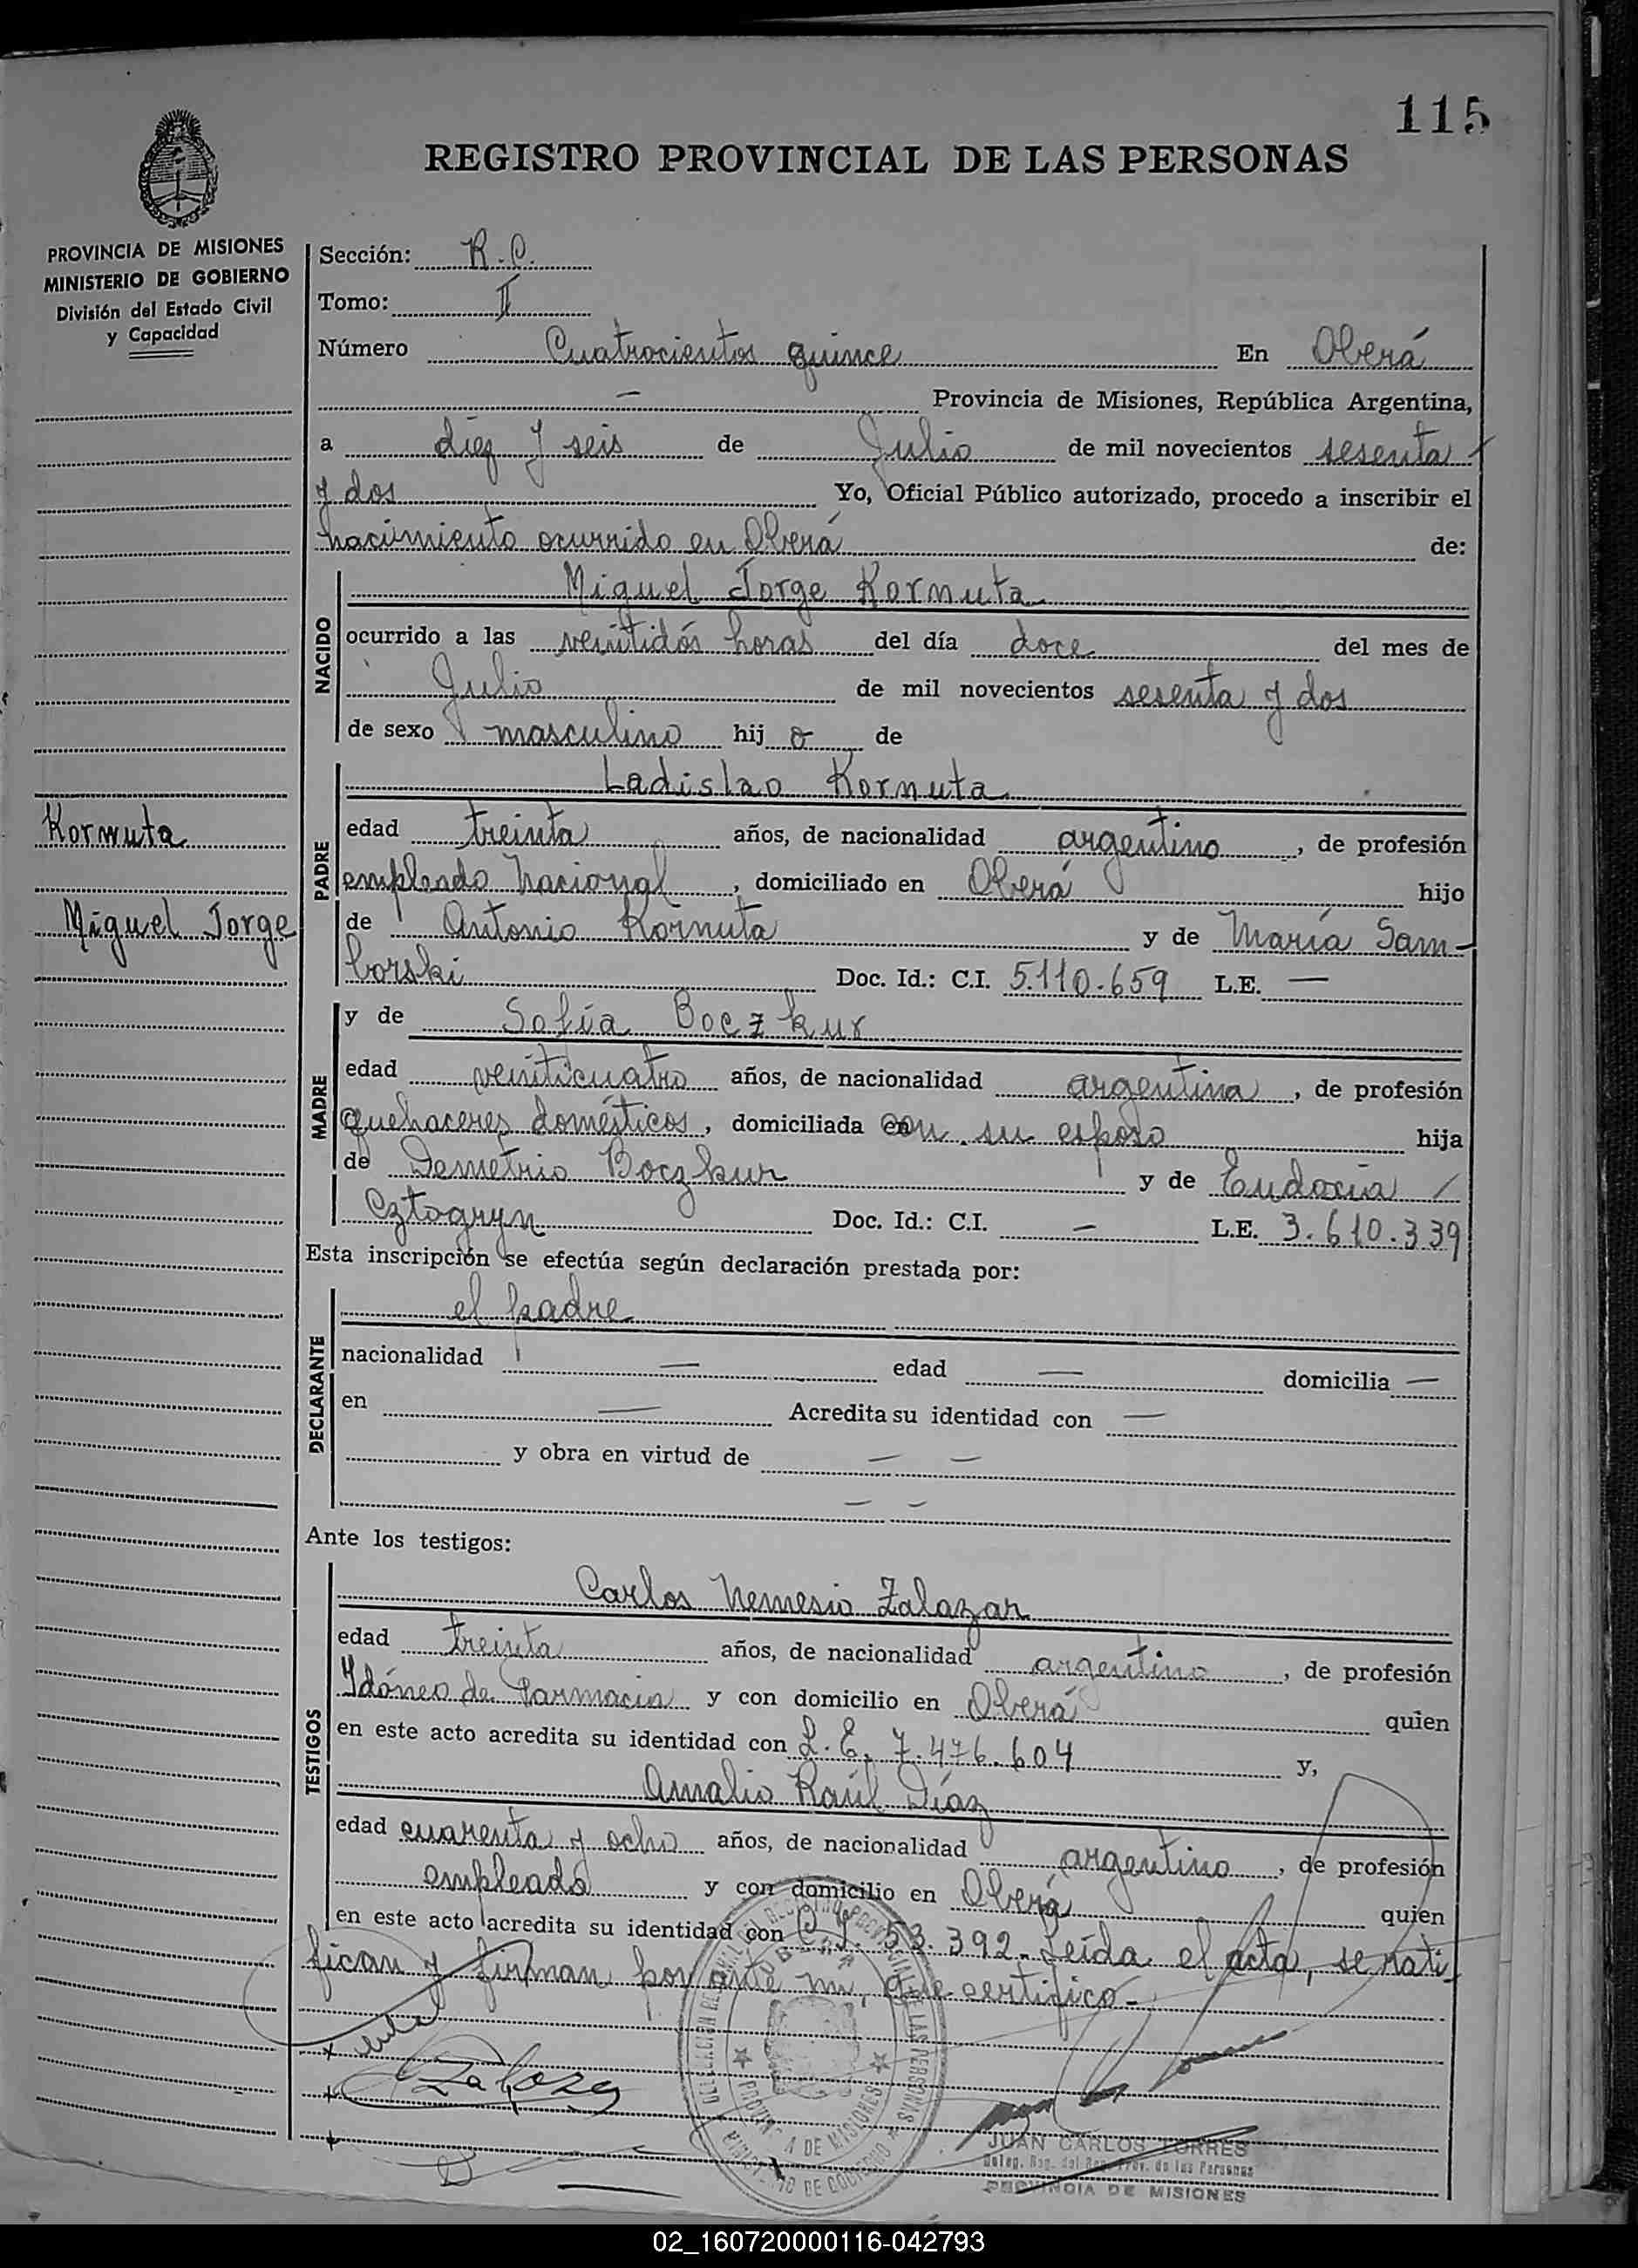 115
REGISTRO PROVINCIAL DE LAS PERSONAS
PROVINCIA DE MISIONES
MINISTERIO DE GOBIERNO
División del Estado Civil
y Capacidad
Sección: R.C.
Tomo: II
Número Cuatrocientos quince En Oberá
— Provincia de Misiones, República Argentina,
a diez y seis de Julio de mil novecientos sesenta
y dos Yo, Oficial Público autorizado, procedo a inscribir el
nacimiento ocurrido en Oberá de:
NACIDO
Miguel Jorge Kornuta
ocurrido a las veintidós horas del día doce del mes de
Julio de mil novecientos sesenta y dos
de sexo masculino hij o de
PADRE
Ladislao Kornuta
Kornuta
Miguel Jorge
edad treinta años, de nacionalidad argentino, de profesión
empleado Nacional, domiciliado en Oberá hijo
de Antonio Kornuta y de María Sam-
borski Doc. Id.: C.I. 5.110.659 L.E. —
MADRE
y de Sofía Boczkur
edad veinticuatro años, de nacionalidad argentina, de profesión
quehaceres domésticos, domiciliada con su esposo hija
de Demetrio Boczkur y de Eudocia /
Cztogryn Doc. Id.: C.I. — L.E. 3.610.339
Esta inscripción se efectúa según declaración prestada por:
DECLARANTE
el padre
nacionalidad — edad — domicilia —
en — Acredita su identidad con —
y obra en virtud de — —
— —
Ante los testigos:
TESTIGOS
Carlos Nemesio Zalazar
edad treinta años, de nacionalidad argentino, de profesión
Idóneo de Farmacia y con domicilio en Oberá quien
en este acto acredita su identidad con L.E. 7.476.604 y,
Amalio Raúl Díaz
edad cuarenta y ocho años, de nacionalidad argentino, de profesión
empleado y con domicilio en Oberá quien
en este acto acredita su identidad con C.I. 53.392.- Leída el acta, se rati-
fican y firman por ante mi, que certifico.-
JUAN CARLOS TORRES
Deleg. Reg. del Reg. Prov. de las Personas
PROVINCIA DE MISIONES
02_160720000116-042793